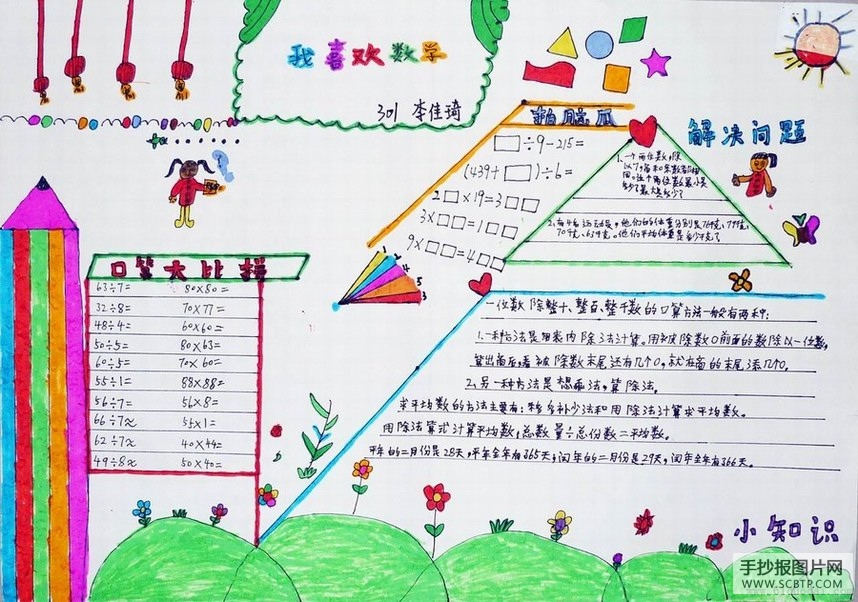 我喜欢数学
301 李佳琦
拍脑瓜
□÷9-215=
(439+□)÷6=
2□×19=3□□
3×□□=1□□
9×□□=4□□
解决问题
1、一个两位数,除
2、有4名运动员,他们的体重分别是76千克、77千克、
70千克、63千克。他们平均体重是多少千克?
口算大比拼
63÷7= 80×80=
32÷8= 70×77=
48÷4= 60×60=
50÷5= 80×63=
60÷5= 70×60=
55÷1= 88×88=
56÷7= 56×8=
66÷7≈ 55×1=
62÷7≈ 40×44=
49÷8≈ 50×40=
一位数除整十、整百、整千数的口算方法一般有两种:
1.一种方法是用表内除法计算。用被除数0前面的数除以一位数,
算出商后,看被除数末尾还有几个0,就在商的末尾添几个0。
2.另一种方法是想乘法,算除法。
求平均数的方法主要有:移多补少法和用除法计算求平均数。
用除法算式计算平均数,总数量÷总份数=平均数。
平年的二月份是28天,平年全年有365天,闰年的二月份是29天,闰年全年有366天。
小知识
手抄报图片网
WWW.SCBTP.COM